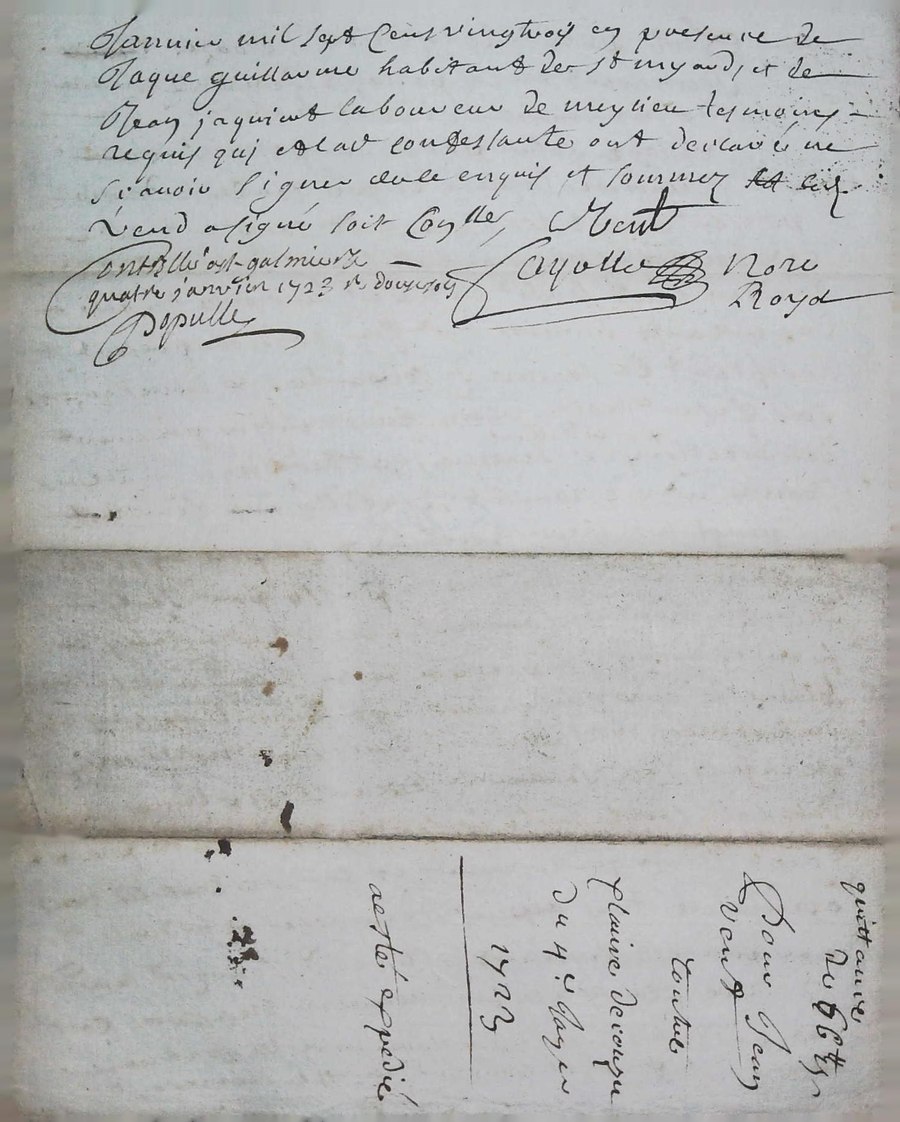 Januier mil sept Cens vingtrois en presence de
Jaque guillaume habitant de st myard, et de
Jean jaquient laboureur de meylieu tesmoins
requis qui et lad confessante ont declaré ne
scavoir signer de ce enquis et sommez
Vend a signé soit Vent
Controllé a st galmier le
quatre janvier 1723 r douze sols
Populle
Cayolle
Nore
Royal
quittance
de 66
Pour Jean
Vent
Contre
plaive
Du 4e Janer
1723
a esté expedié